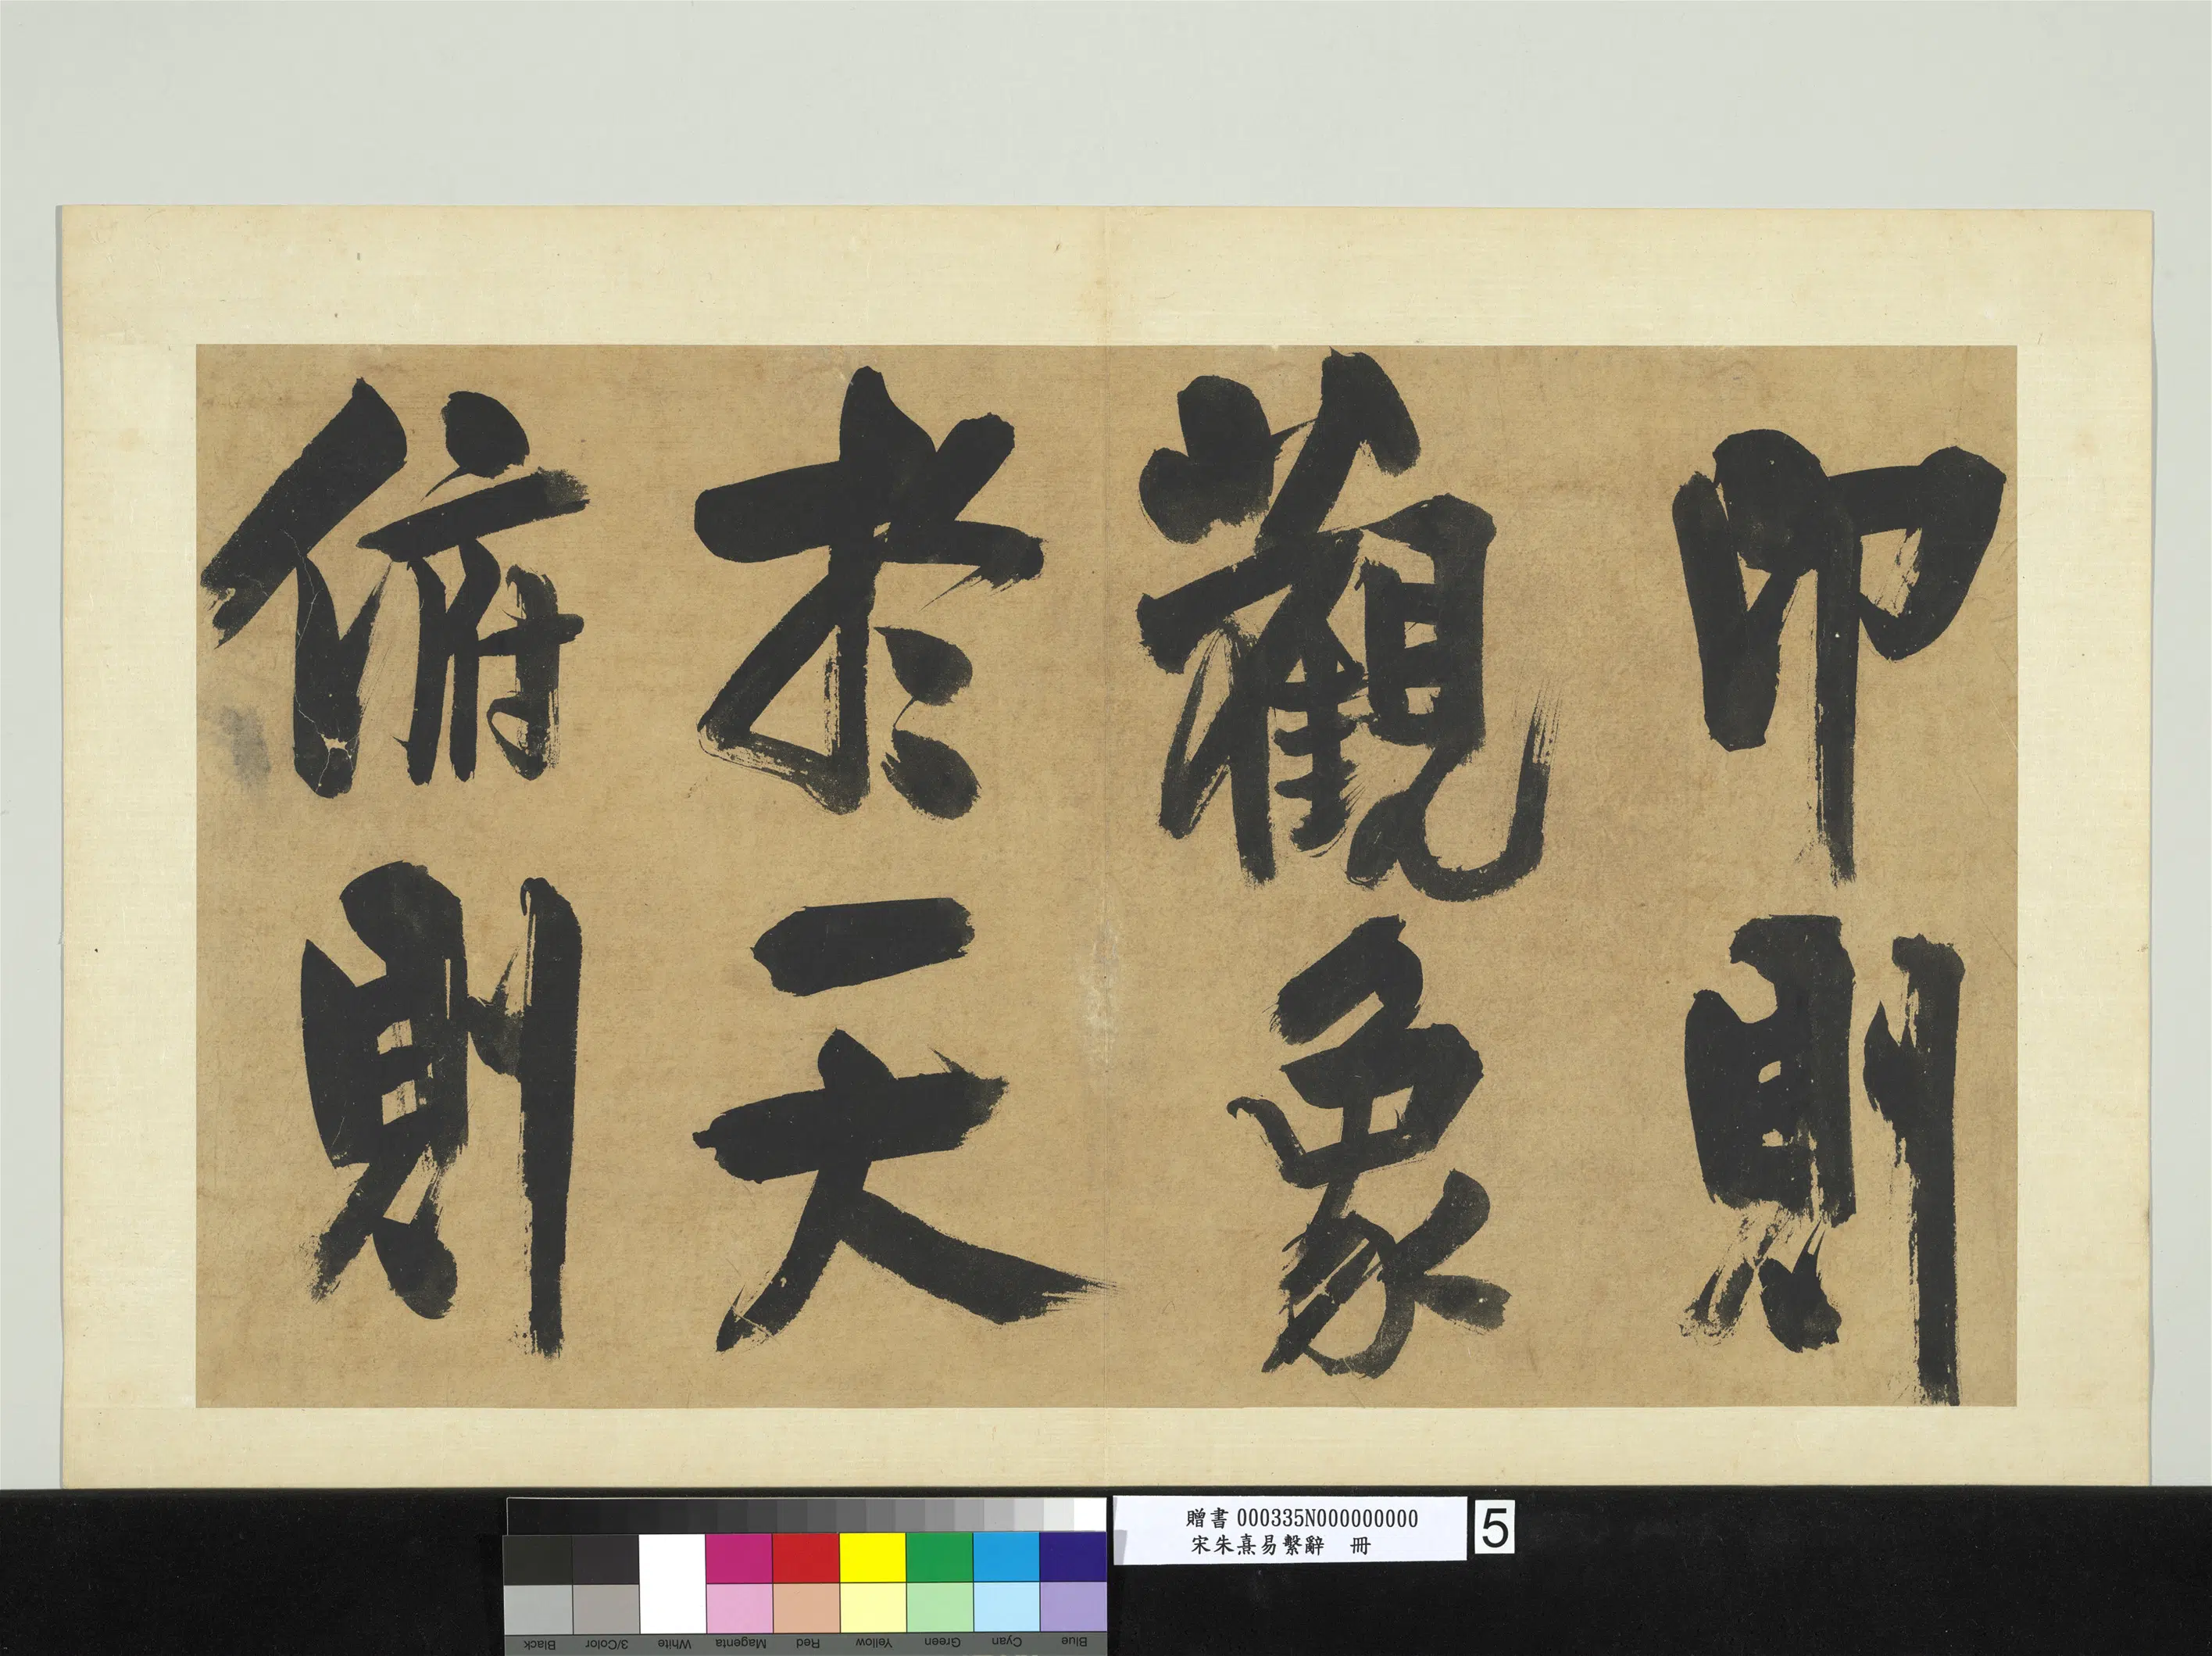 卬則
觀象
於天
俯則
贈書 000335N000000000
宋朱熹易繫辭 冊
5
Black
3/Color
White
Magenta
Red
Yellow
Green
Cyan
Blue